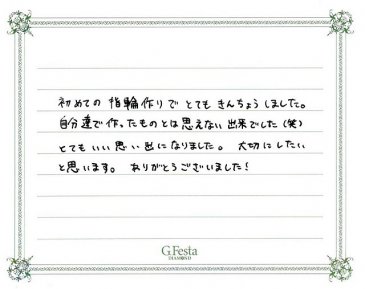 初めての 指輪作りで とても きんちょうしました。
自分達で作ったものとは思えない出来でした(笑)
とてもいい思い出になりました。 大切にしたい
と思います。 ありがとうございました!
G.Festa
DIAMOND